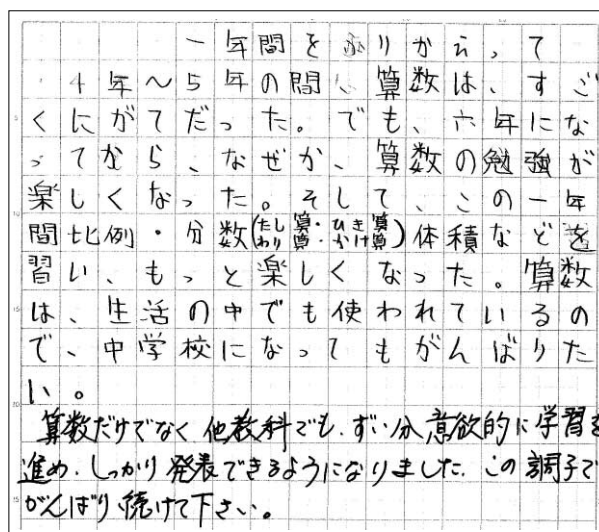 一年間をふりかえって
4年～5年の間、算数は、すご
くにがてだった。でも、六年にな
ってから、なぜか、算数の勉強が
楽しくなった。そして、この一年
間比例・分数(たし算・ひき算わり算・かけ算)体積などを
習い、もっと楽しくなった。算数
は、生活の中でも使われているの
で、中学校になってもがんばりた
い。
算数だけでなく他教科でも、ずい分意欲的に学習を
進め、しっかり発表できるようになりました。この調子で
がんばり続けて下さい。